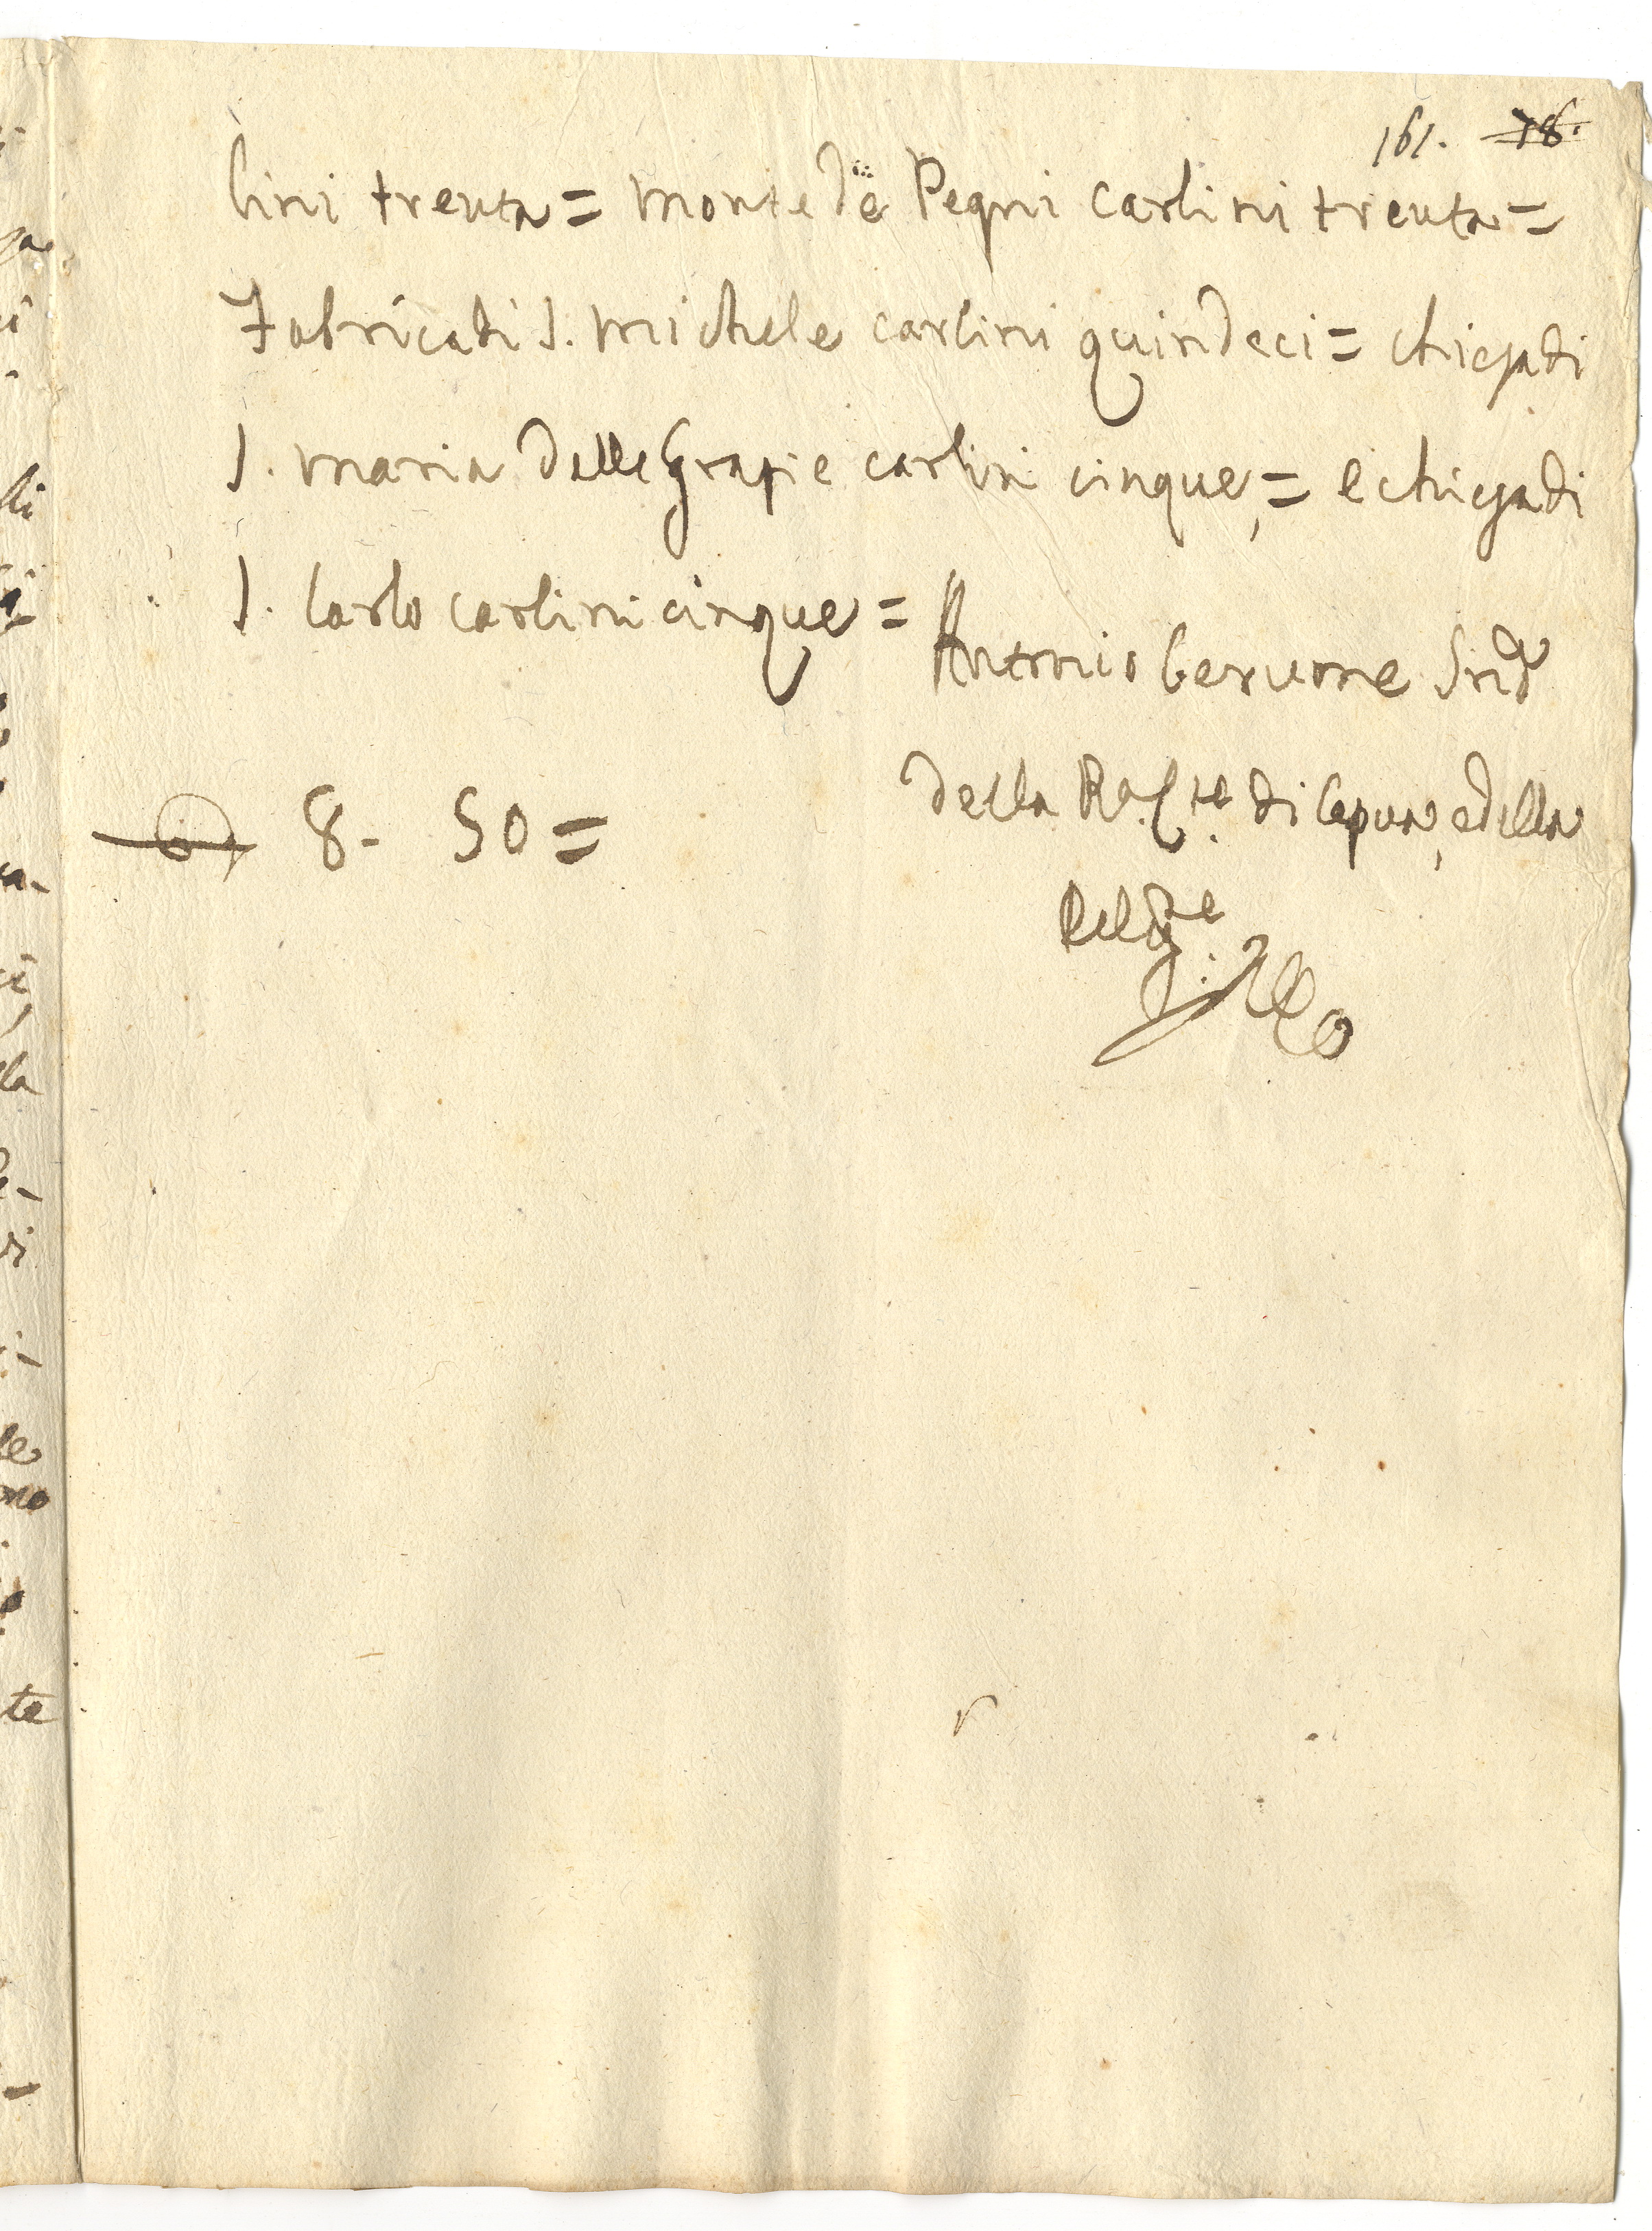 161. 78.
lini trenta = monte de Pegni carlini trenta =
Fabrica di S. Michele carlini quindeci = chiesa di
S. Maria delle Grazie carlini cinque, = e chiesa di
S. Carlo carlini cinque =
Antonio Cervone Sind.
8 - 50 =
della R. C. di Capua, e della